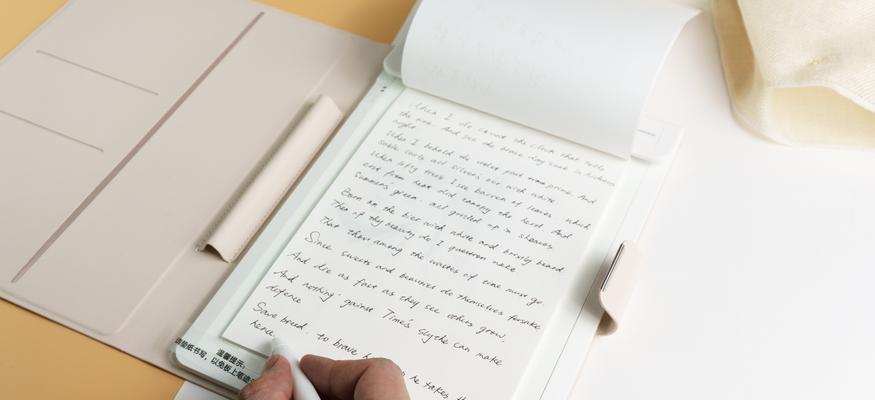 When I do count the clock that tells
the time, And see the brave day sunk in hideous
night
When I behold the violet past prime, And
sable curls all silver'd o'er with white
When lofty trees I see barren of leaves which
erst from heat did canopy the herd, And
Summer's green all girded up in sheaves
Born on the bier with white and bristly beard
Then of thy beauty do I question make
That thou among the wastes of time must go
Since sweets and beauties do themselves forsake
And die as fast as they see others grow,
And nothing 'gainst Time's scythe can make
defence
Save breed, to brave h he takes th
hence
温馨提示:
纸书写,以免板上笔迹